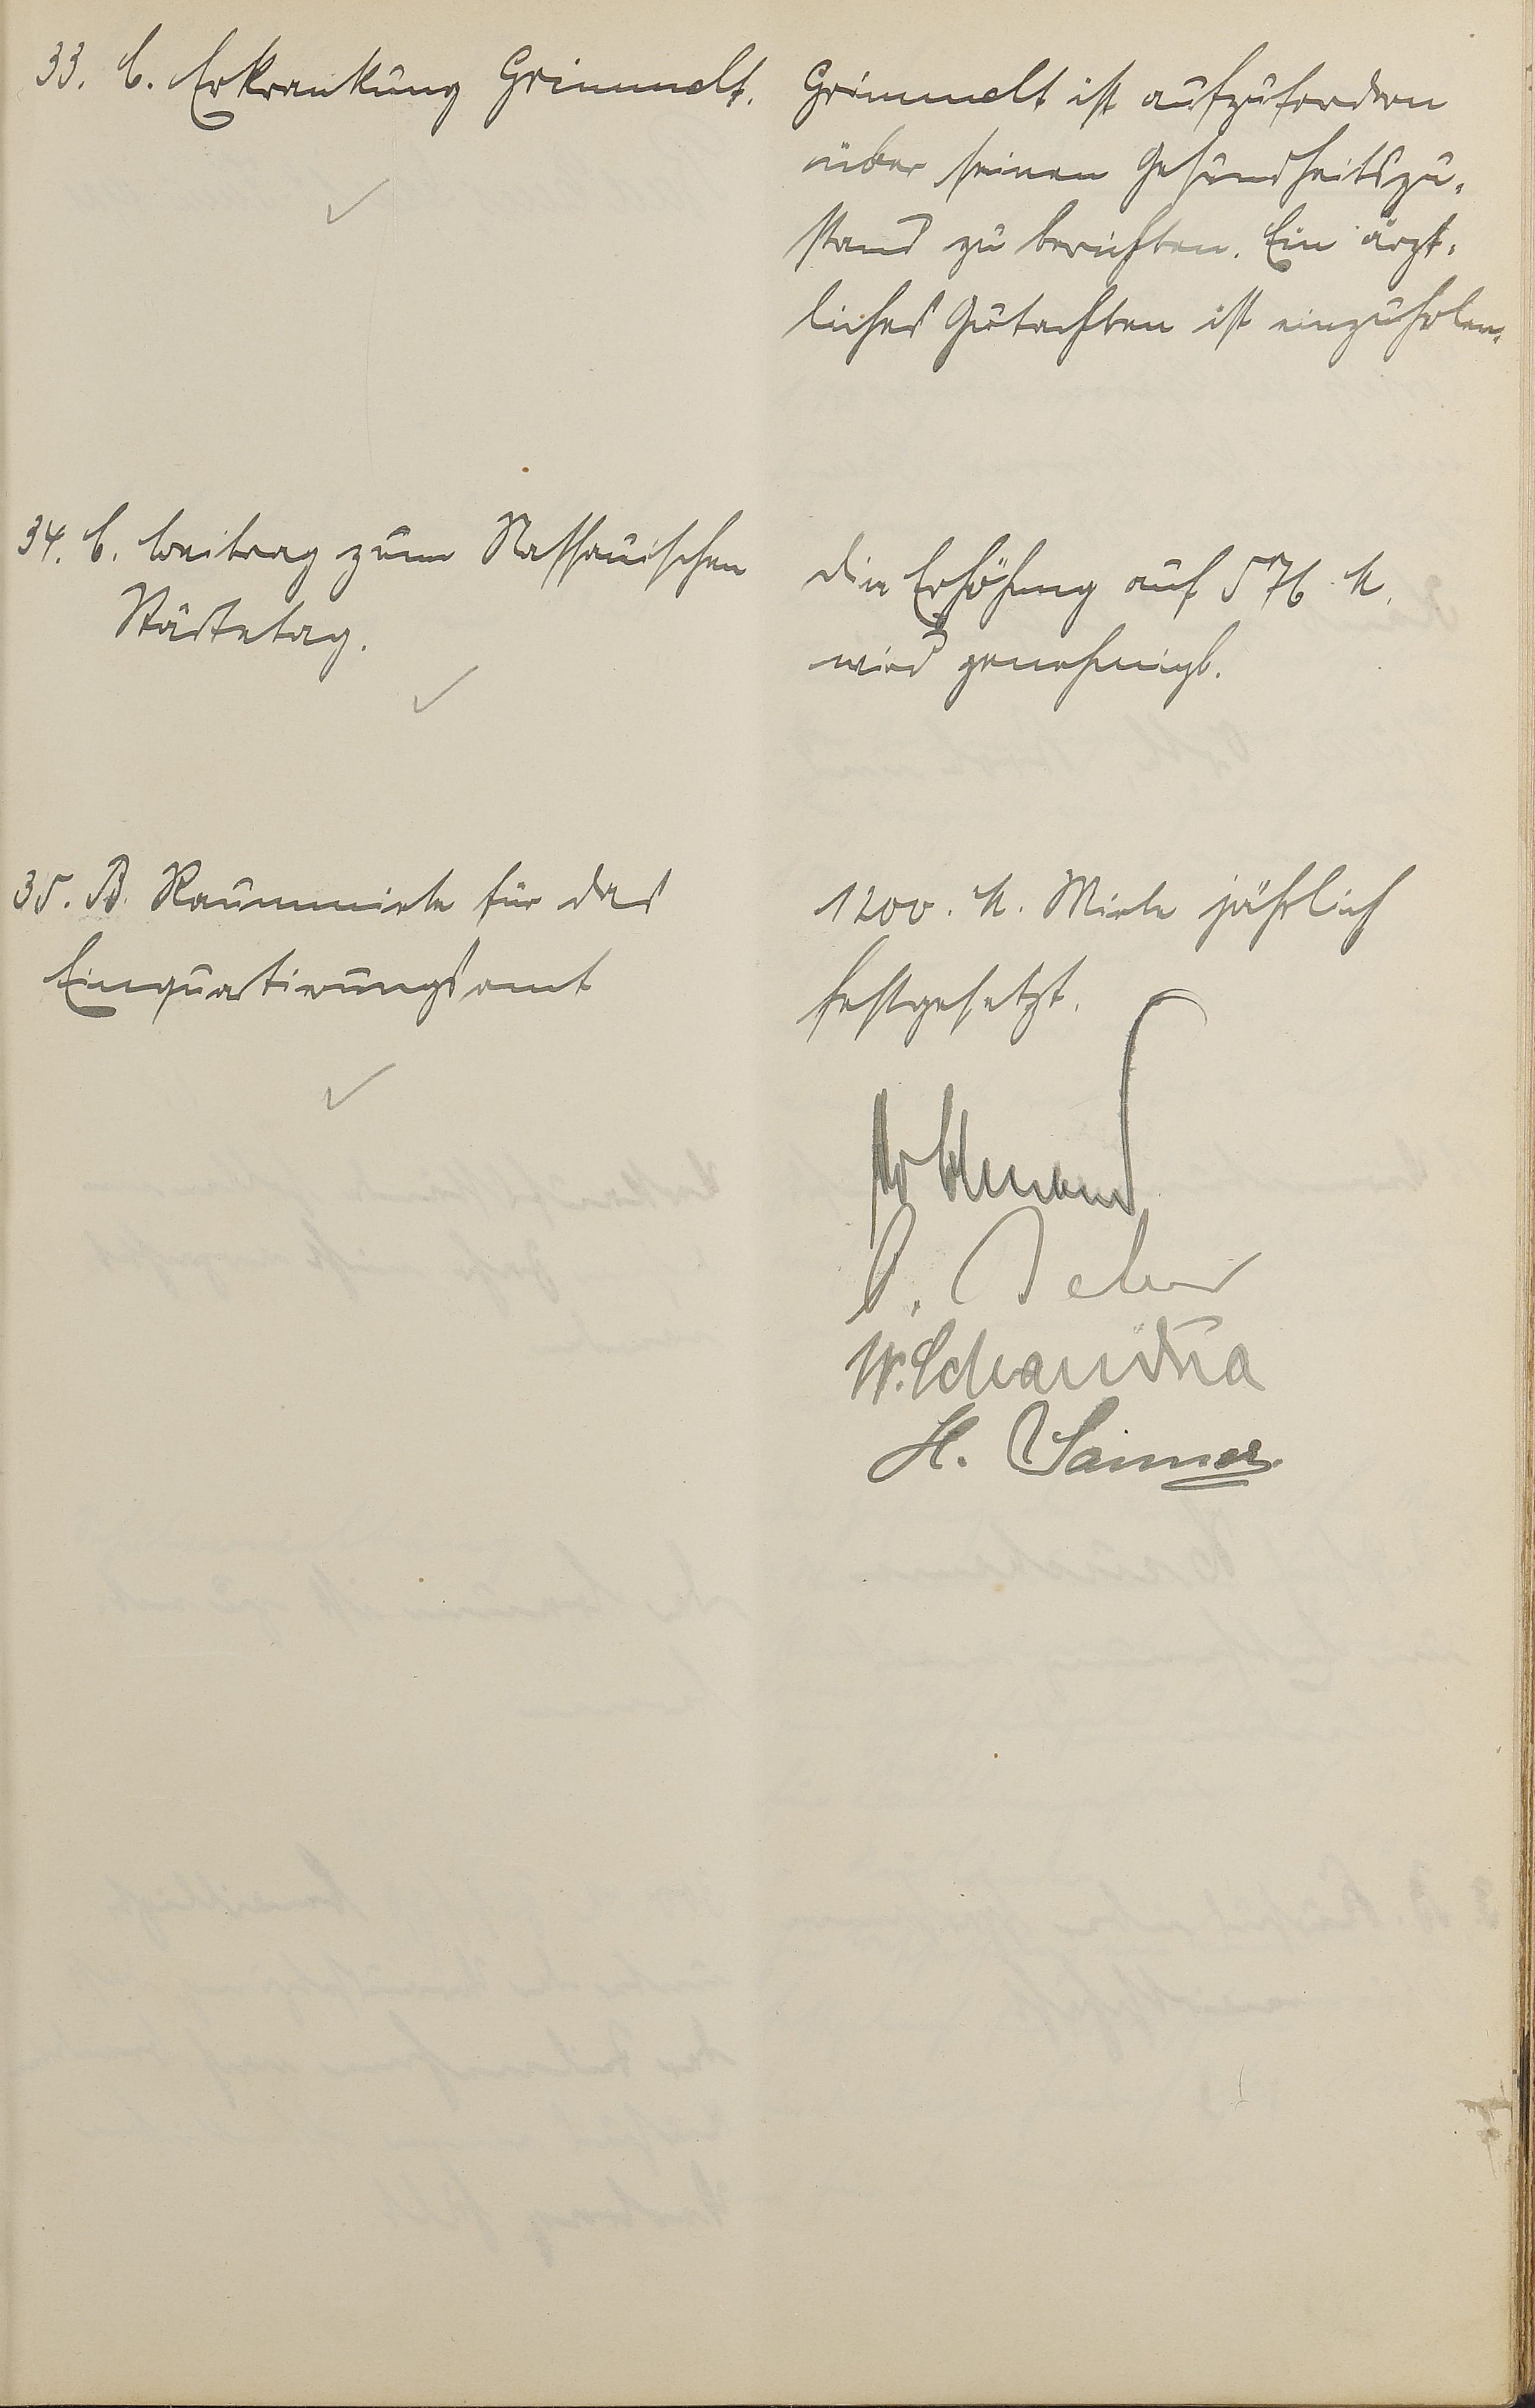 33. C. Erkrankung Grimmelt.
Grimmelt ist aufzufordern
über seinen Gesundheitszu-
stand zu berichten. Ein ärzt-
liches Gutachten ist einzuholen.
34. C. Beitrag zum Nassauischen
Städtetag.
Die Erhöhung auf 576 M.
wird genehmigt.
35. B. Raummiete für das
Einquartierungsamt
1200. M. Miete jährlich
festgesetzt.
W. Schandua
H.